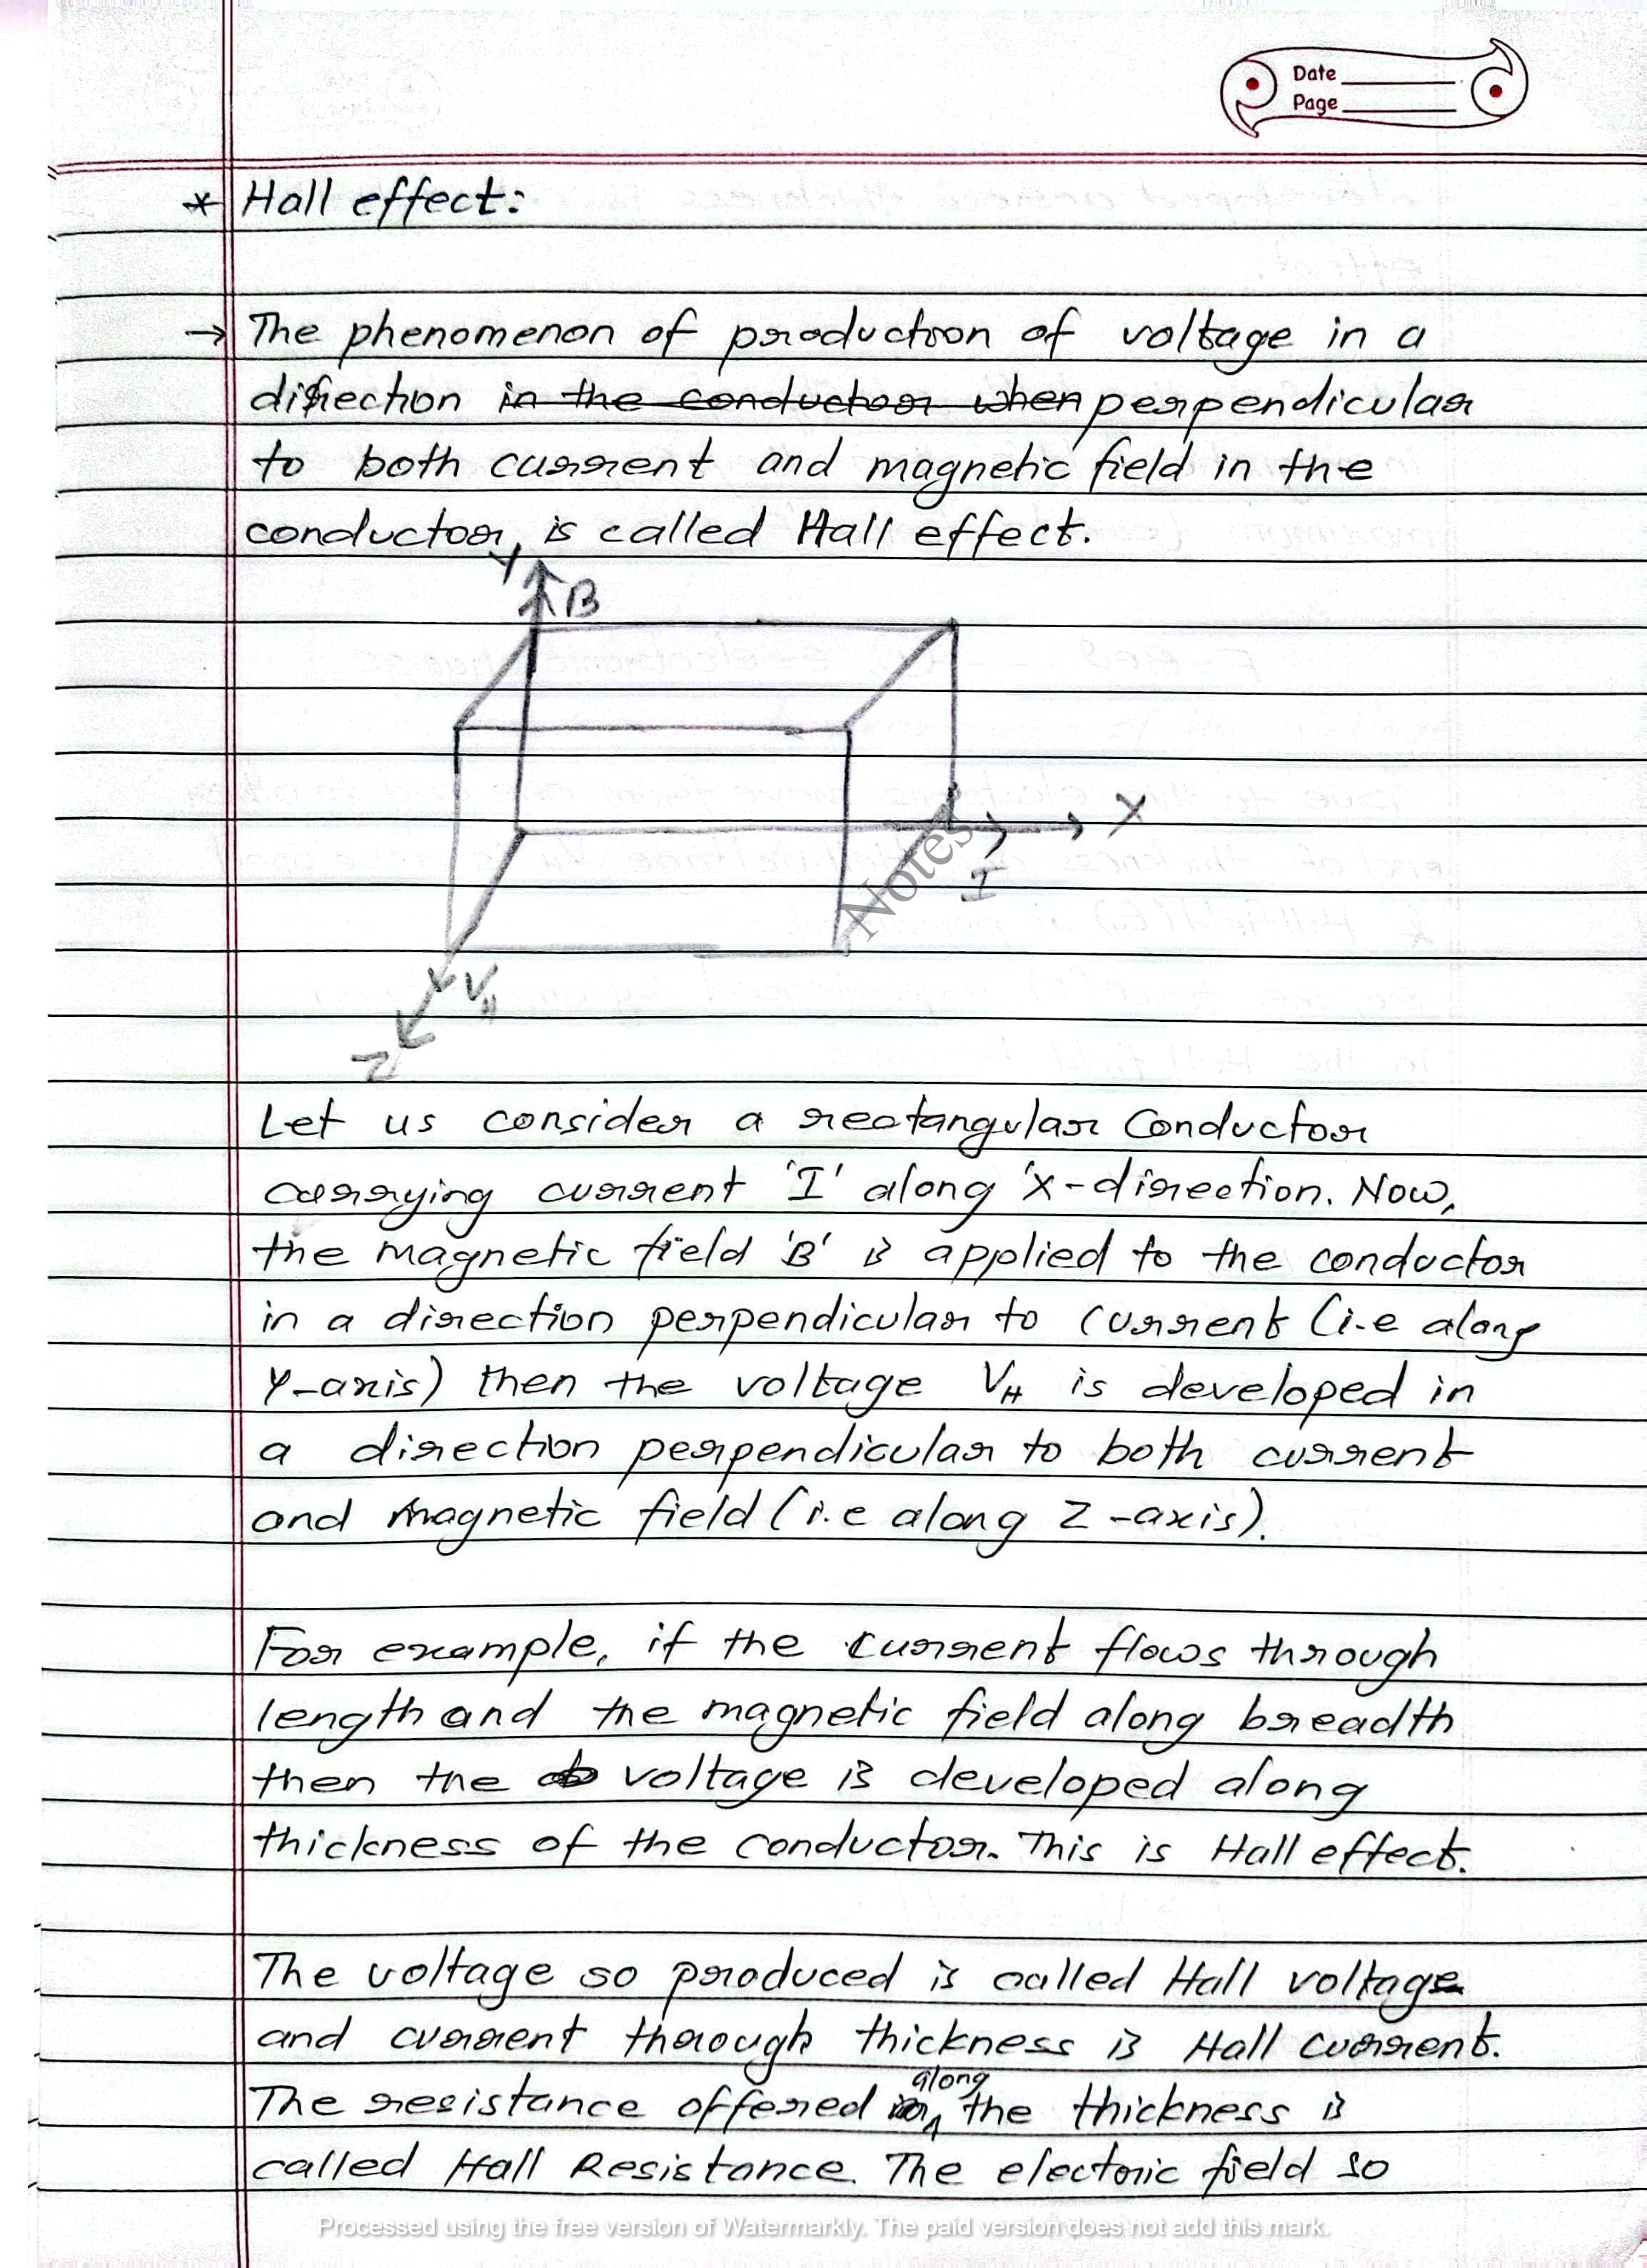 Date
Page
* Hall effect:
→ The phenomenon of production of voltage in a
direction in the conductor when perpendicular
to both current and magnetic field in the
conductor, is called Hall effect.
Y
B
X
I
Notes
V_H
Z
Let us consider a rectangular Conductor
carrying current 'I' along 'x-direction. Now,
the magnetic field 'B' is applied to the conductor
in a direction perpendicular to current (i.e along
Y-axis) then the voltage V_H is developed in
a direction perpendicular to both current
and magnetic field (i.e along Z-axis).
For example, if the current flows through
length and the magnetic field along breadth
then the voltage is developed along
thickness of the conductor. This is Hall effect.
The voltage so produced is called Hall voltage
and current through thickness is Hall current.
along
The resistance offered the thickness is
called Hall Resistance. The electric field so
Processed using the free version of Watermarkly. The paid version does not add this mark.